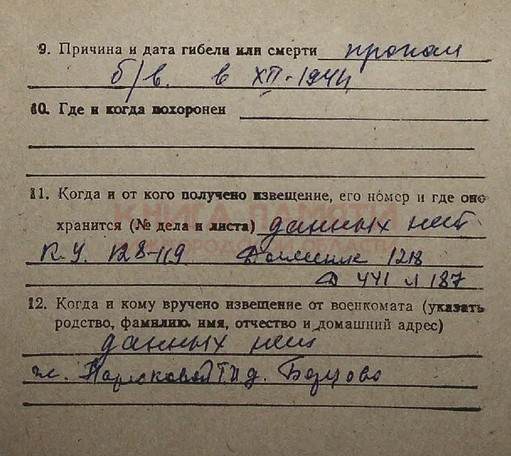 9. Причина и дата гибели или смерти пропал
б/в. в XII-1944
10. Где и когда похоронен
11. Когда и от кого получено извещение, его номер и где оно
хранится (№ дела и листа) данных нет
КНИГА ПАМЯТИ
ОБЛАСТИ
128-119 1218
Д 441 л 187
12. Когда и кому вручено извещение от военкомата (указать
родство, фамилию, имя, отчество и домашний адрес)
данных нет
д. Борцово